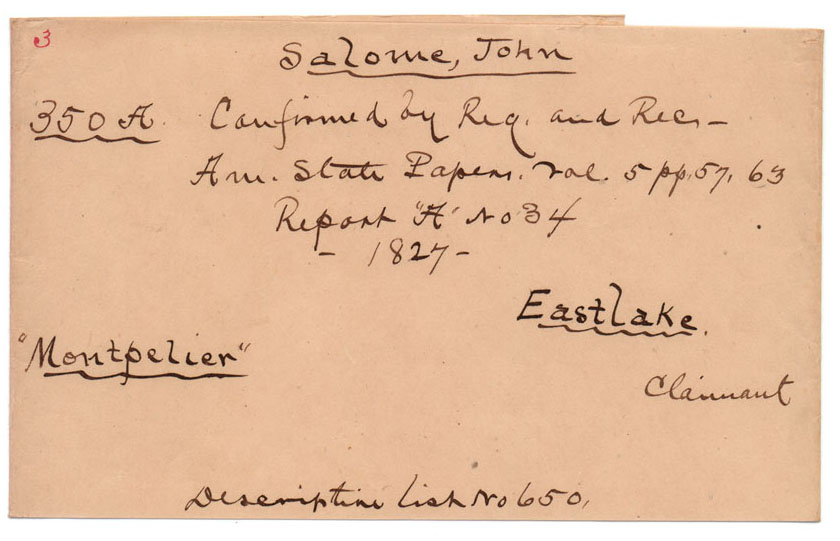 3
Salome, John
350 A. Confirmed by Reg. and Rec. -
Am. State Papers. Vol. 5 pp. 57, 63
Report "A" No 34
- 1827 -
Eastlake.
"Montpelier"
Claimant
Descriptive list No 650.